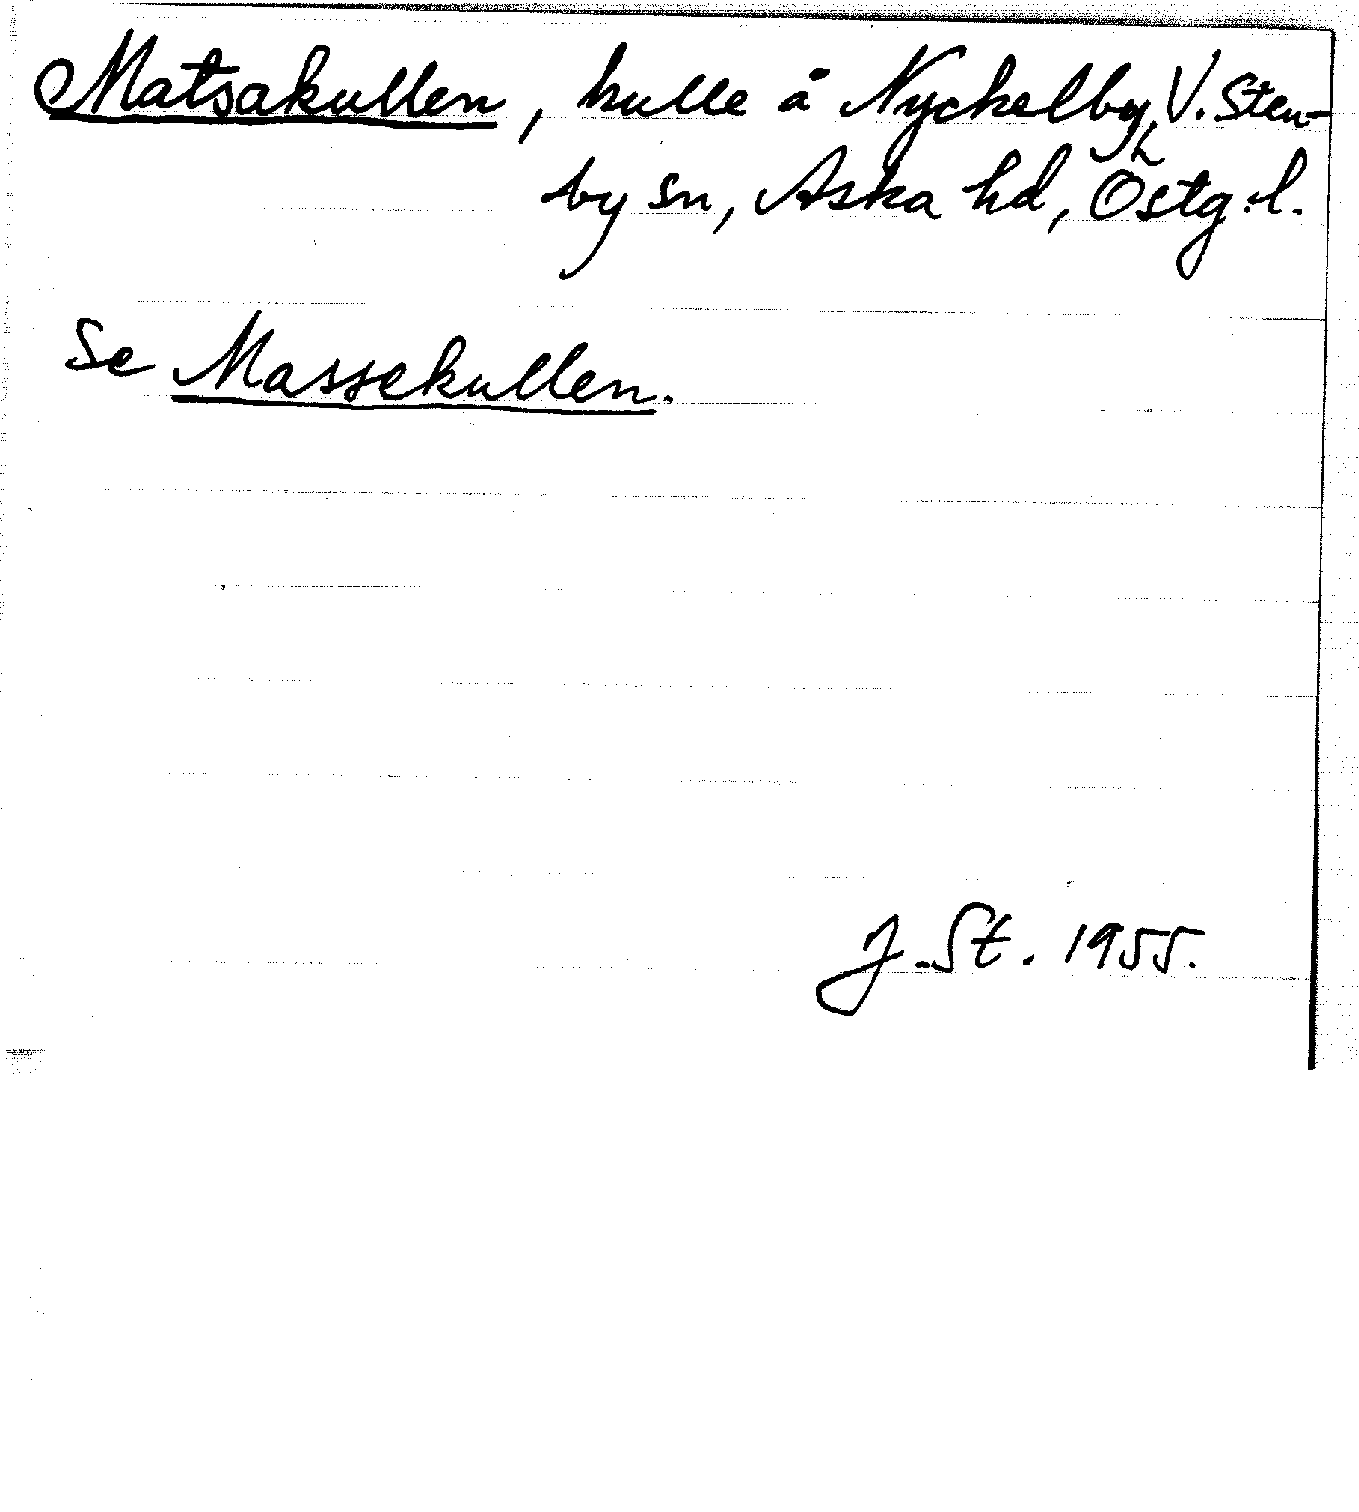 Matsakullen, kulle å Nyckelby, V. Sten-
by sn, Aska hd, Östg. l.
Se Massekullen.
J. St. 1955.